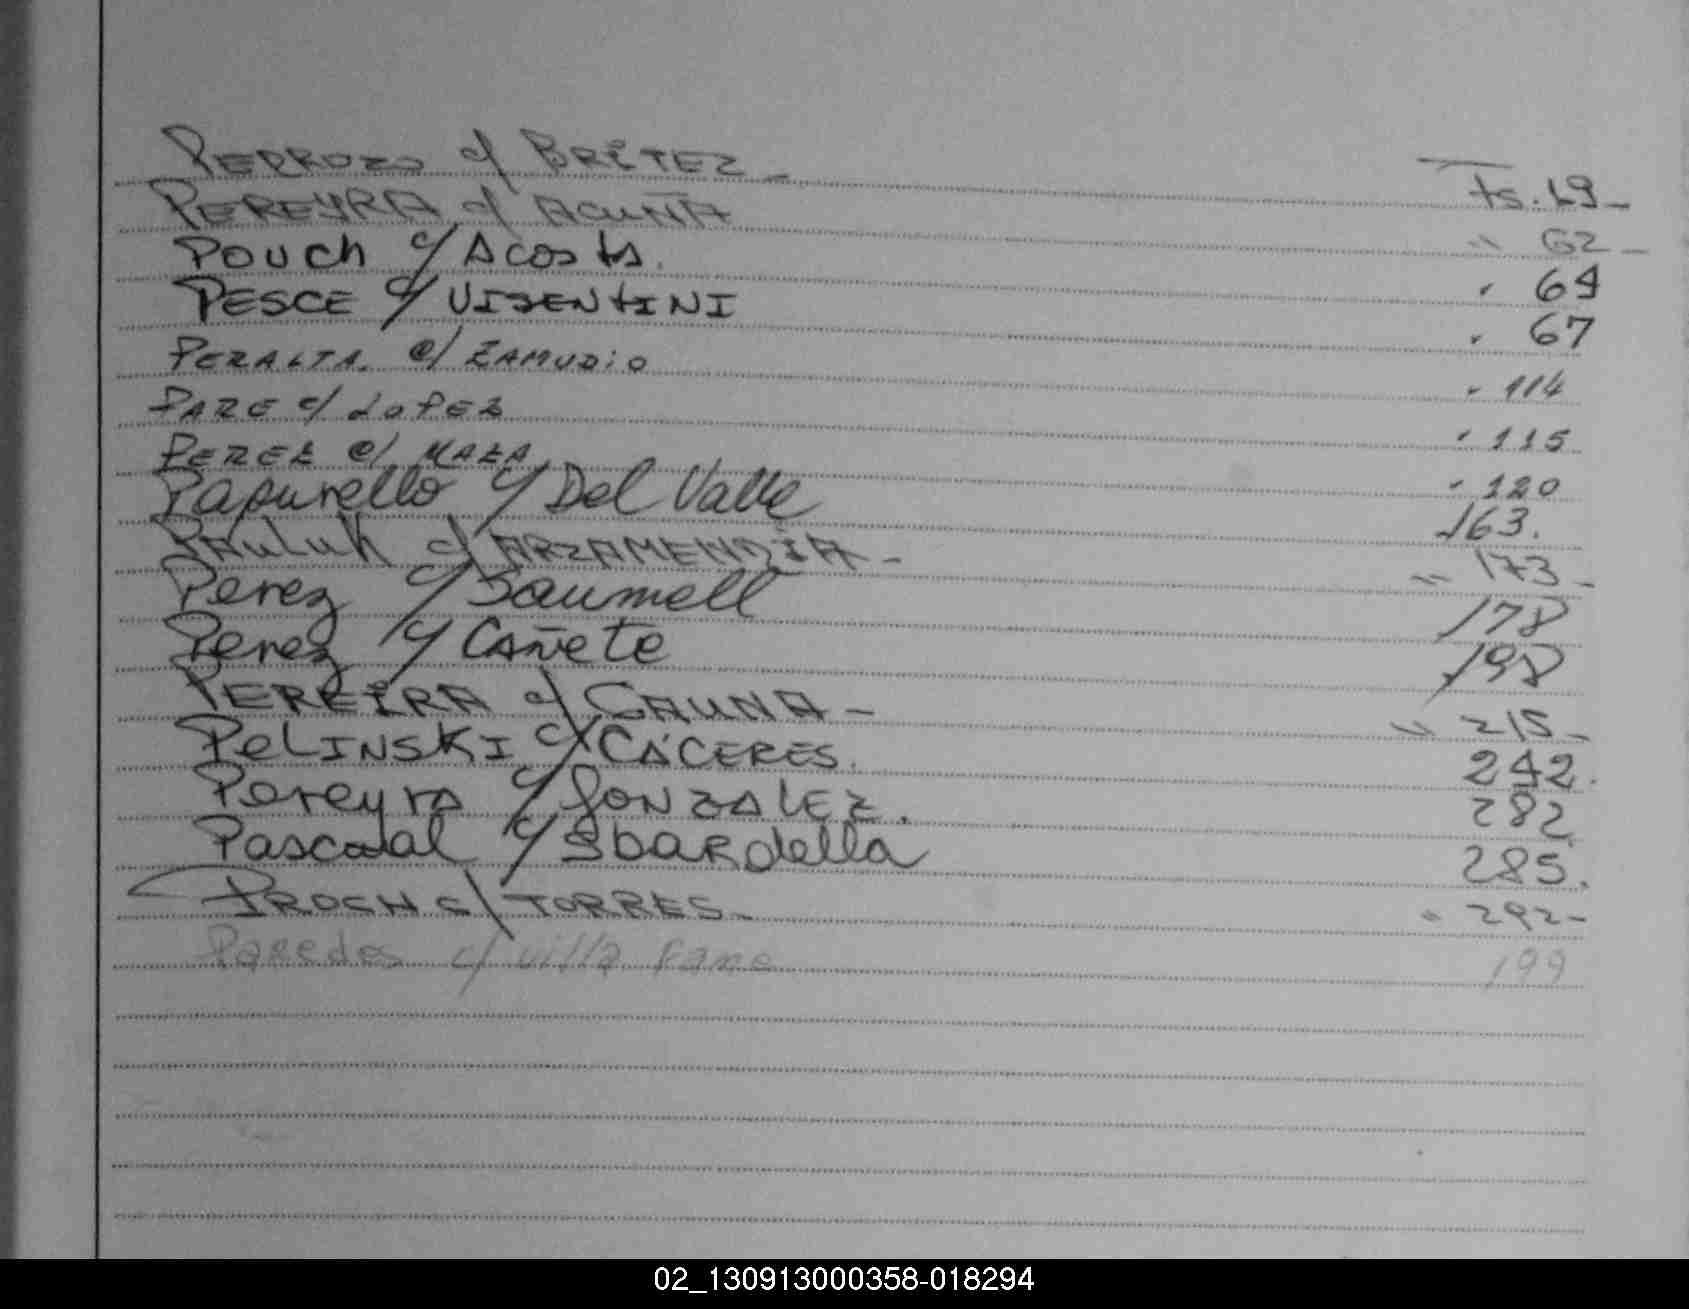 PEDROZO c/ BRÍTEZ - Fs. 19 -
PEREYRA c/ ACUÑA " 62 -
POUCH c/ ACOSTA. " 64
PESCE c/ VISENTINI " 67
PERALTA. c/ ZAMUDIO " 114
PAZE c/ LOPEZ " 115
PEREZ c/ MAZA " 120
Papurello c/ Del Valle 163.
PAULUK c/ ARZAMENDIA - " 173 -
Perez c/ Saumell 178
Perez c/ Cañete 198
PEREÍRA c/ GAUNA - " 215 -
PELINSKI c/ CÁCERES. 242.
Pereyra c/ GONZALEZ. 282
Pascual c/ Sbardella 285.
c/ TORRES - " 292 -
Paredes c/ villa Fañe 199
02_130913000358-018294